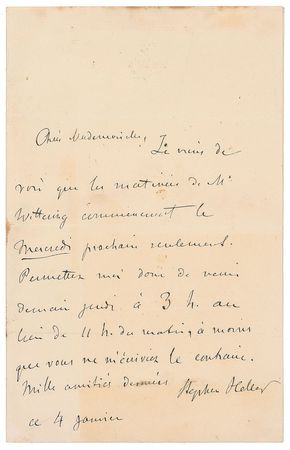 Chère Mademoiselle,
Je viens de
voir que les matinées de Mr
Wittering commencent le
Mercredi prochain seulement.
Permettez moi donc de venir
demain jeudi à 3 h. au
lieu de 11 h. du matin, à moins
que vous ne m'écriviez le contraire.
Mille amitiés
Stephen Heller
ce 4 janvier